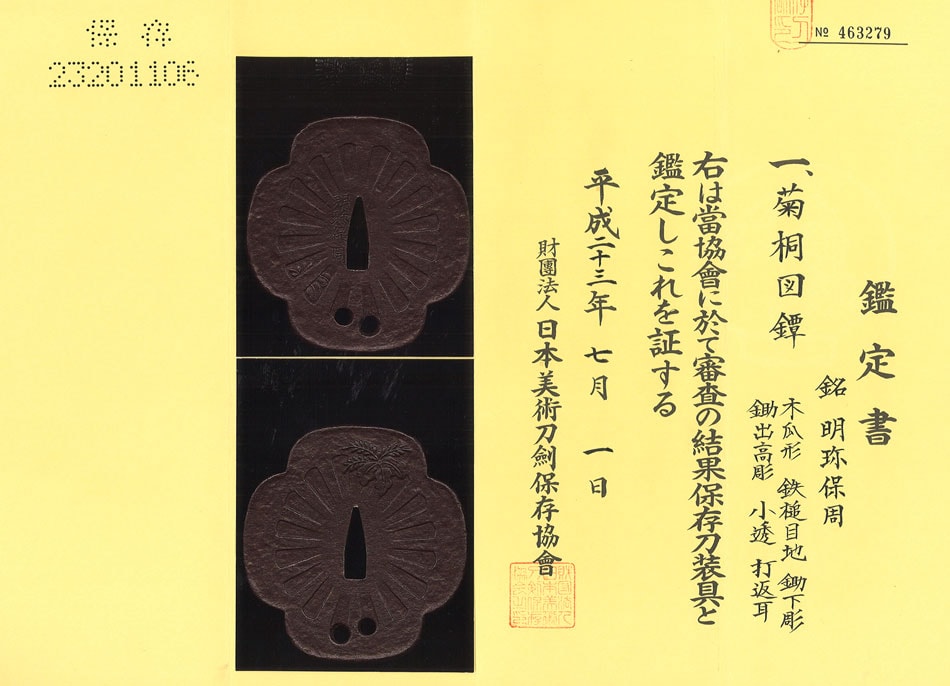 № 463279
鑑定書
銘 明珎保周
木瓜形 鉄槌目地 鋤下彫
鋤出高彫 小透 打返耳
一、菊桐図鐔
右は當協會に於て審査の結果保存刀装具と
鑑定しこれを証する
平成二十三年 七月 一日
財團法人 日本美術刀劍保存協會
保存
23201106